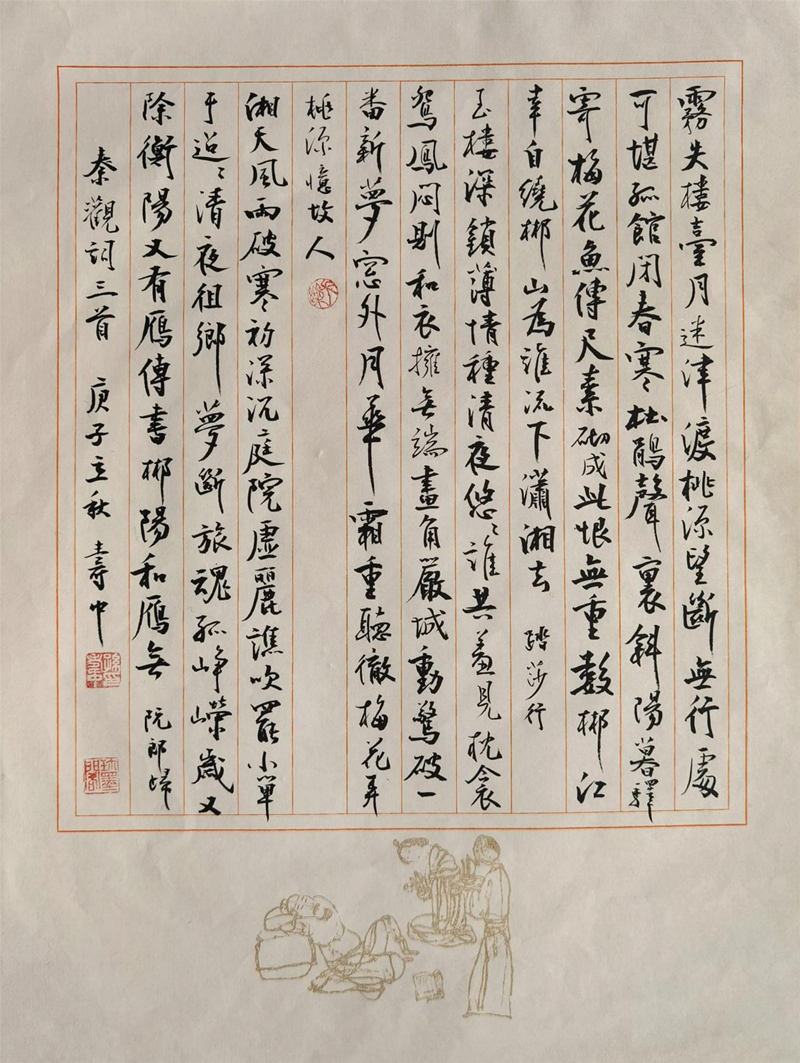 霧失樓臺月迷津渡桃源望斷無行處
可堪孤館閉春寒杜鵑聲裏斜陽暮驛
寄梅花魚傳尺素砌成此恨無重數郴江
幸自繞郴山為誰流下瀟湘去 踏莎行
玉樓深鎖薄情種清夜悠〻誰共羞見枕衾
鴛鳳悶則和衣擁無端畫角嚴城動驚破一
番新夢窓外月華霜重聽徹梅花弄
桃源憶故人
湘天風雨破寒初深沉庭院虛麗譙吹罷小單
于迢〻清夜徂鄉夢斷旅魂孤崢嶸歲又
除衡陽又有雁傳書郴陽和雁無 阮郎歸
秦觀詞三首 庚子立秋 壽中